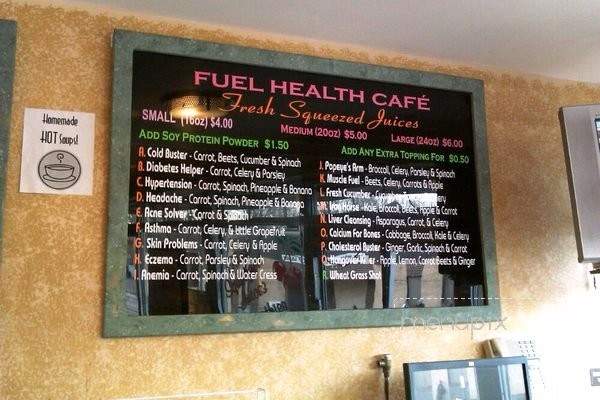 FUEL HEALTH CAFÉ
Fresh Squeezed Juices
SMALL (16oz) $4.00
MEDIUM (20oz) $5.00
LARGE (24oz) $6.00
ADD SOY PROTEIN POWDER $1.50
ADD ANY EXTRA TOPPING FOR $0.50
A. Cold Buster - Carrot, Beets, Cucumber & Spinach
B. Diabetes Helper - Carrot, Celery & Parsley
C. Hypertension - Carrot, Spinach, Pineapple & Banana
D. Headache - Carrot, Spinach, Pineapple & Banana
E. Acne Solver - Carrot & Spinach
F. Asthma - Carrot, Celery, & Little Grapefruit
G. Skin Problems - Carrot, Celery & Apple
H. Eczema - Carrot, Parsley & Spinach
I. Anemia - Carrot, Spinach & Water Cress
J. Popeye's Arm - Broccoli, Celery, Parsley & Spinach
K. Muscle Fuel - Beets, Celery, Carrots & Apple
L. Fresh Cucumber -
M. Iron Horse - Kale, Broccoli, Beets, Apple & Carrot
N. Liver Cleansing - Asparagus, Carrot, & Celery
O. Calcium For Bones - Cabbage, Broccoli, Kale & Celery
P. Cholesterol Buster - Ginger, Garlic, Spinach & Carrot
Q. Hangover Killer - Apple, Lemon, Carrot Beets & Ginger
R. Wheat Grass Shot
Homemade
HOT Soups!
menupix